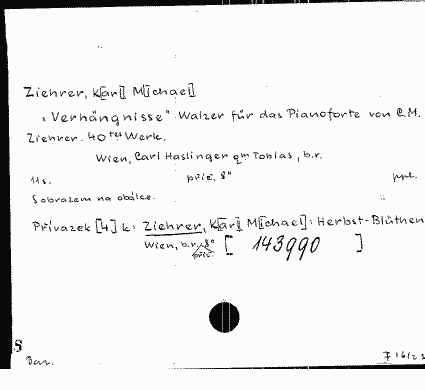 Ziehrer, K[arl] M[ichael]
"Verhängnisse" Walzer für das Pianoforte von C.M.
Ziehrer. 40tes Werk.
Wien, Carl Haslinger qm Tobias, b.r.
11 s. příč. 8° ppt.
S obrazem na obálce.
Přívazek [4] k: Ziehrer, K[arl] M[ichael]: Herbst-Blüthen
Wien, b.r. 8° [ 143990 ]
příč.
8